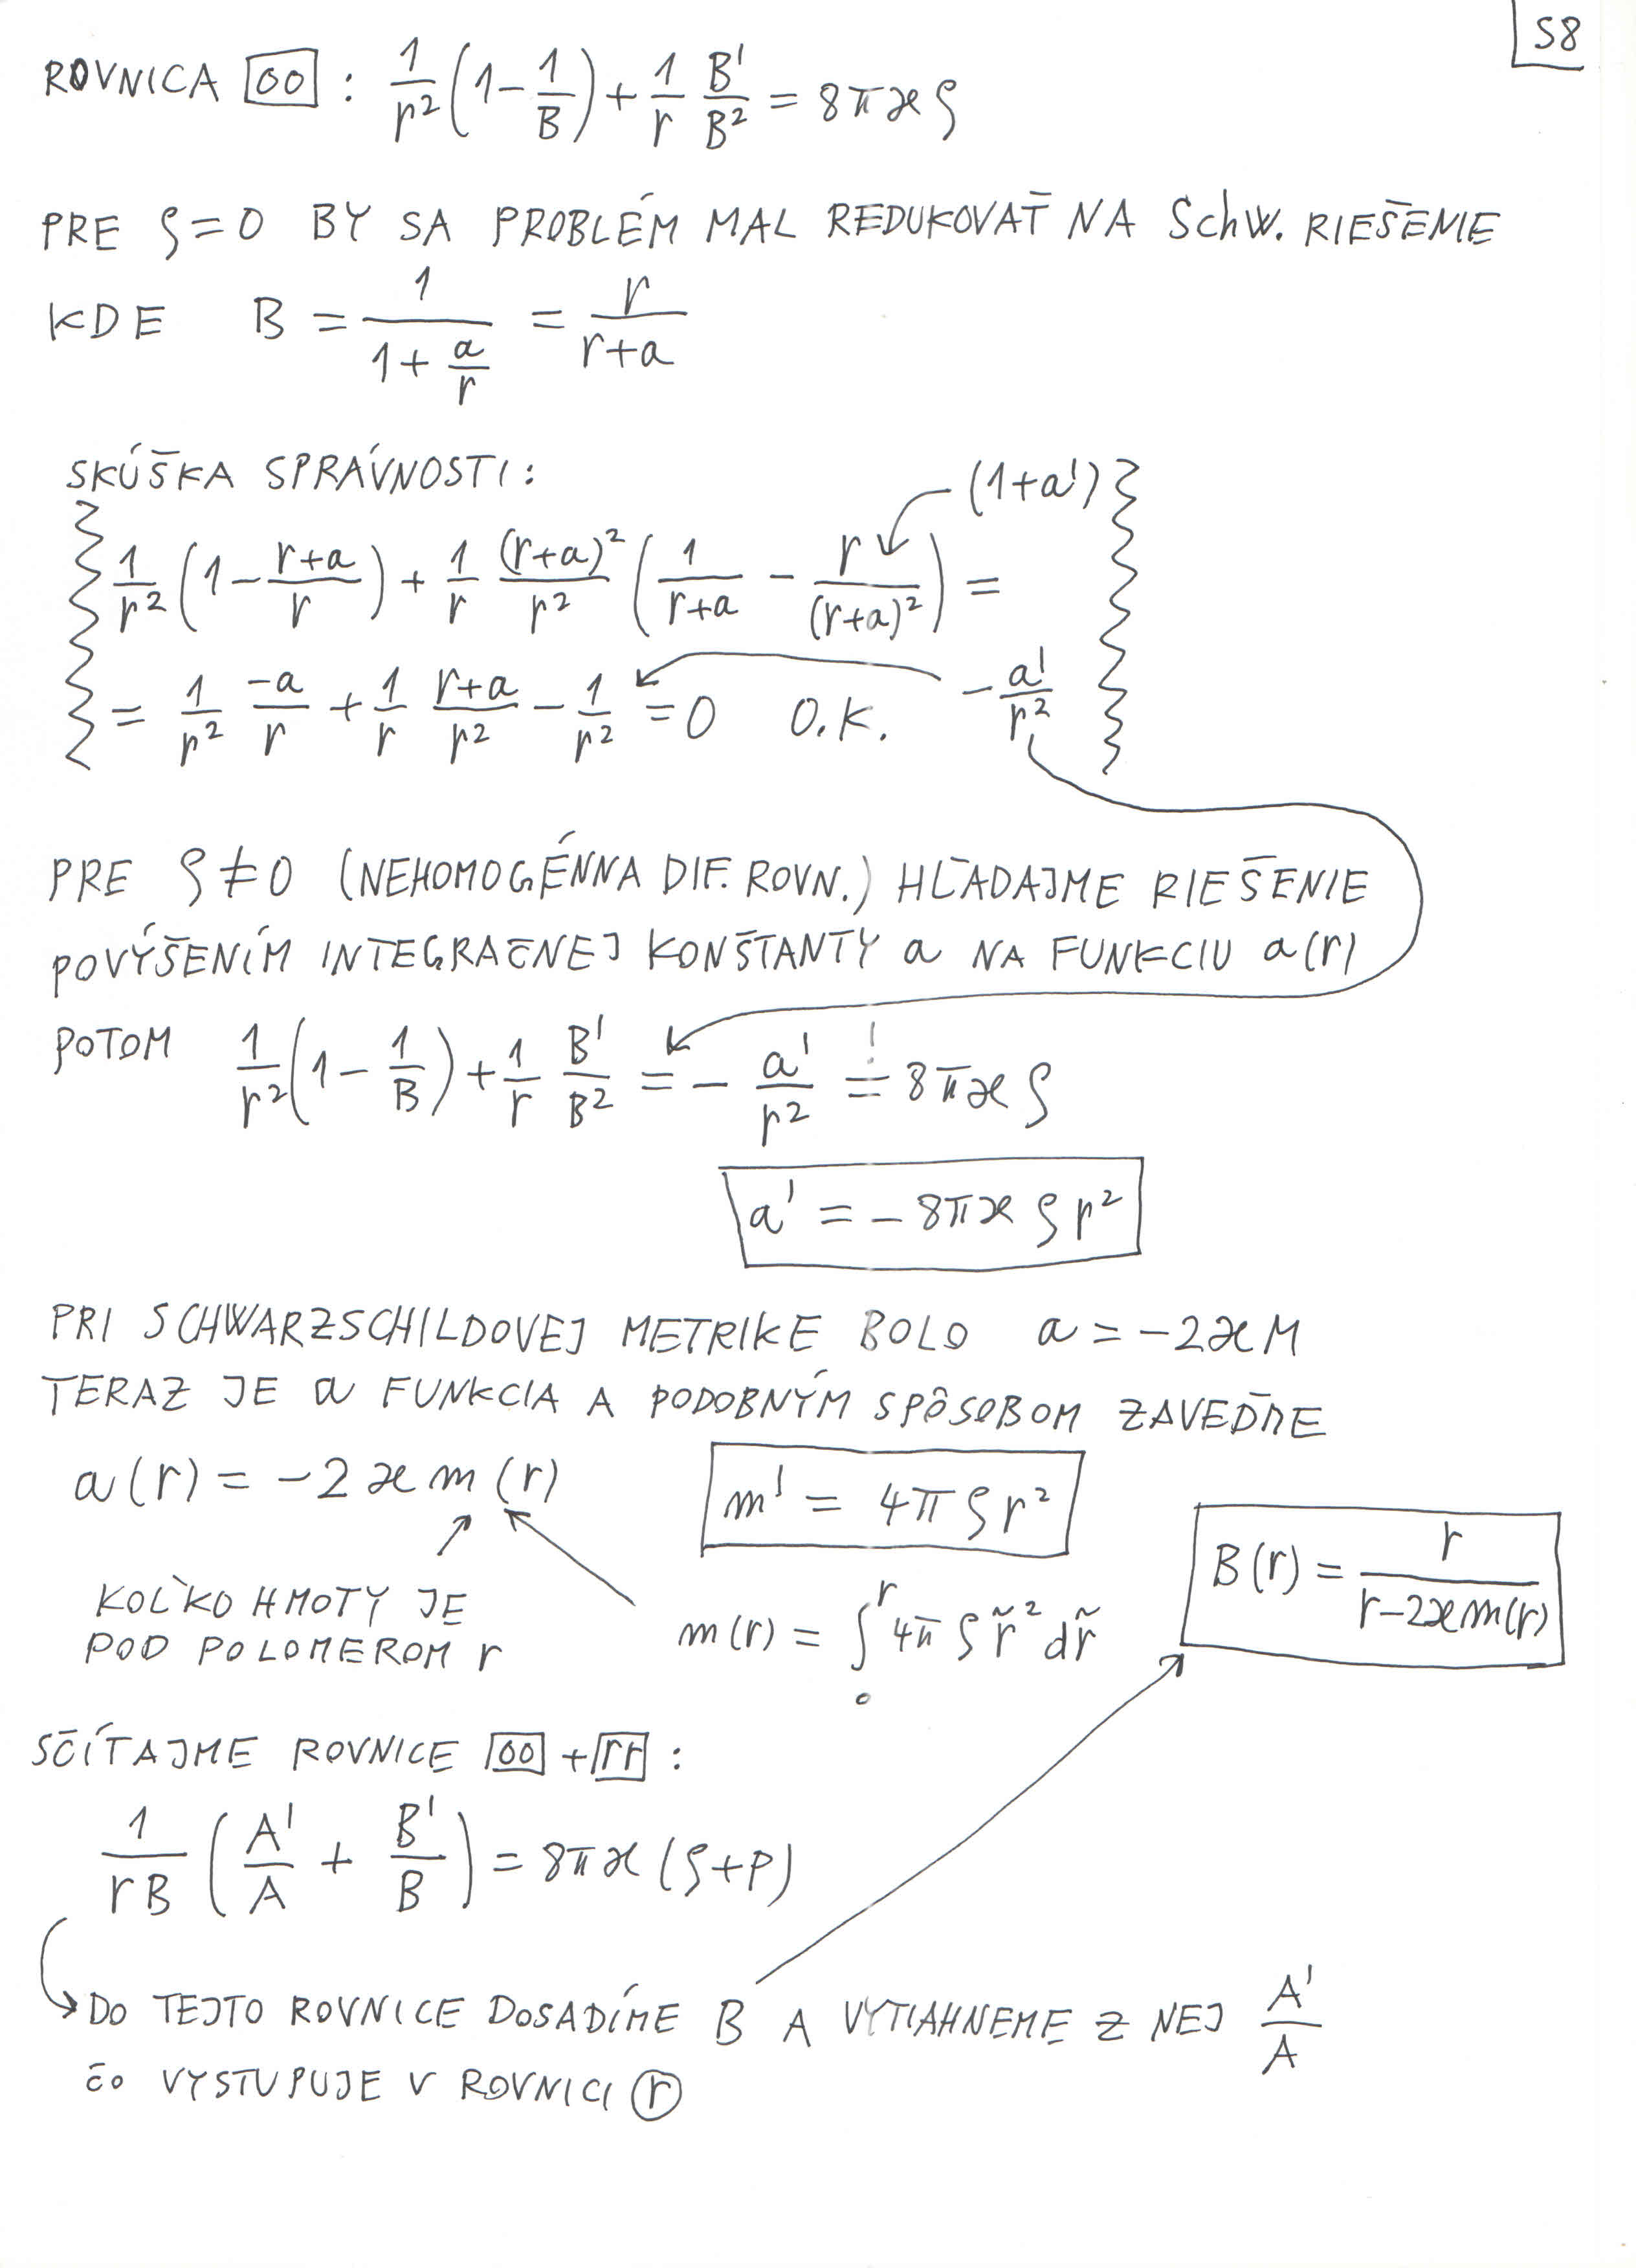 S8
ROVNICA [00] : 1/r² (1 - 1/B) + 1/r B'/B² = 8πϰρ
PRE ρ=0 BY SA PROBLÉM MAL REDUKOVAŤ NA SchW. RIEŠENIE
KDE B = 1/(1 + a/r) = r/(r+a)
SKÚŠKA SPRÁVNOSTI:
(1+a')
1/r² (1 - (r+a)/r) + 1/r (r+a)²/r² (1/(r+a) - r/(r+a)²) =
= 1/r² -a/r + 1/r (r+a)/r² - 1/r² = 0 O.K. - a'/r²
PRE ρ≠0 (NEHOMOGÉNNA DIF. ROVN.) HĽADAJME RIEŠENIE
POVÝŠENÍM INTEGRAČNEJ KONŠTANTY a NA FUNKCIU a(r)
POTOM 1/r² (1 - 1/B) + 1/r B'/B² = - a'/r² =! 8πϰρ
a' = -8πϰρr²
PRI SCHWARZSCHILDOVEJ METRIKE BOLO a = -2ϰM
TERAZ JE a FUNKCIA A PODOBNÝM SPÔSOBOM ZAVEĎME
a(r) = -2ϰm(r) m' = 4πρr²
B(r) = r/(r-2ϰm(r))
KOĽKO HMOTY JE
POD POLOMEROM r
m(r) = ∫₀^r 4πρr̃² dr̃
SČÍTAJME ROVNICE [00] + [rr] :
1/(rB) (A'/A + B'/B) = 8πϰ(ρ+p)
DO TEJTO ROVNICE DOSADÍME B A VYTIAHNEME Z NEJ A'/A
ČO VYSTUPUJE V ROVNICI (r)